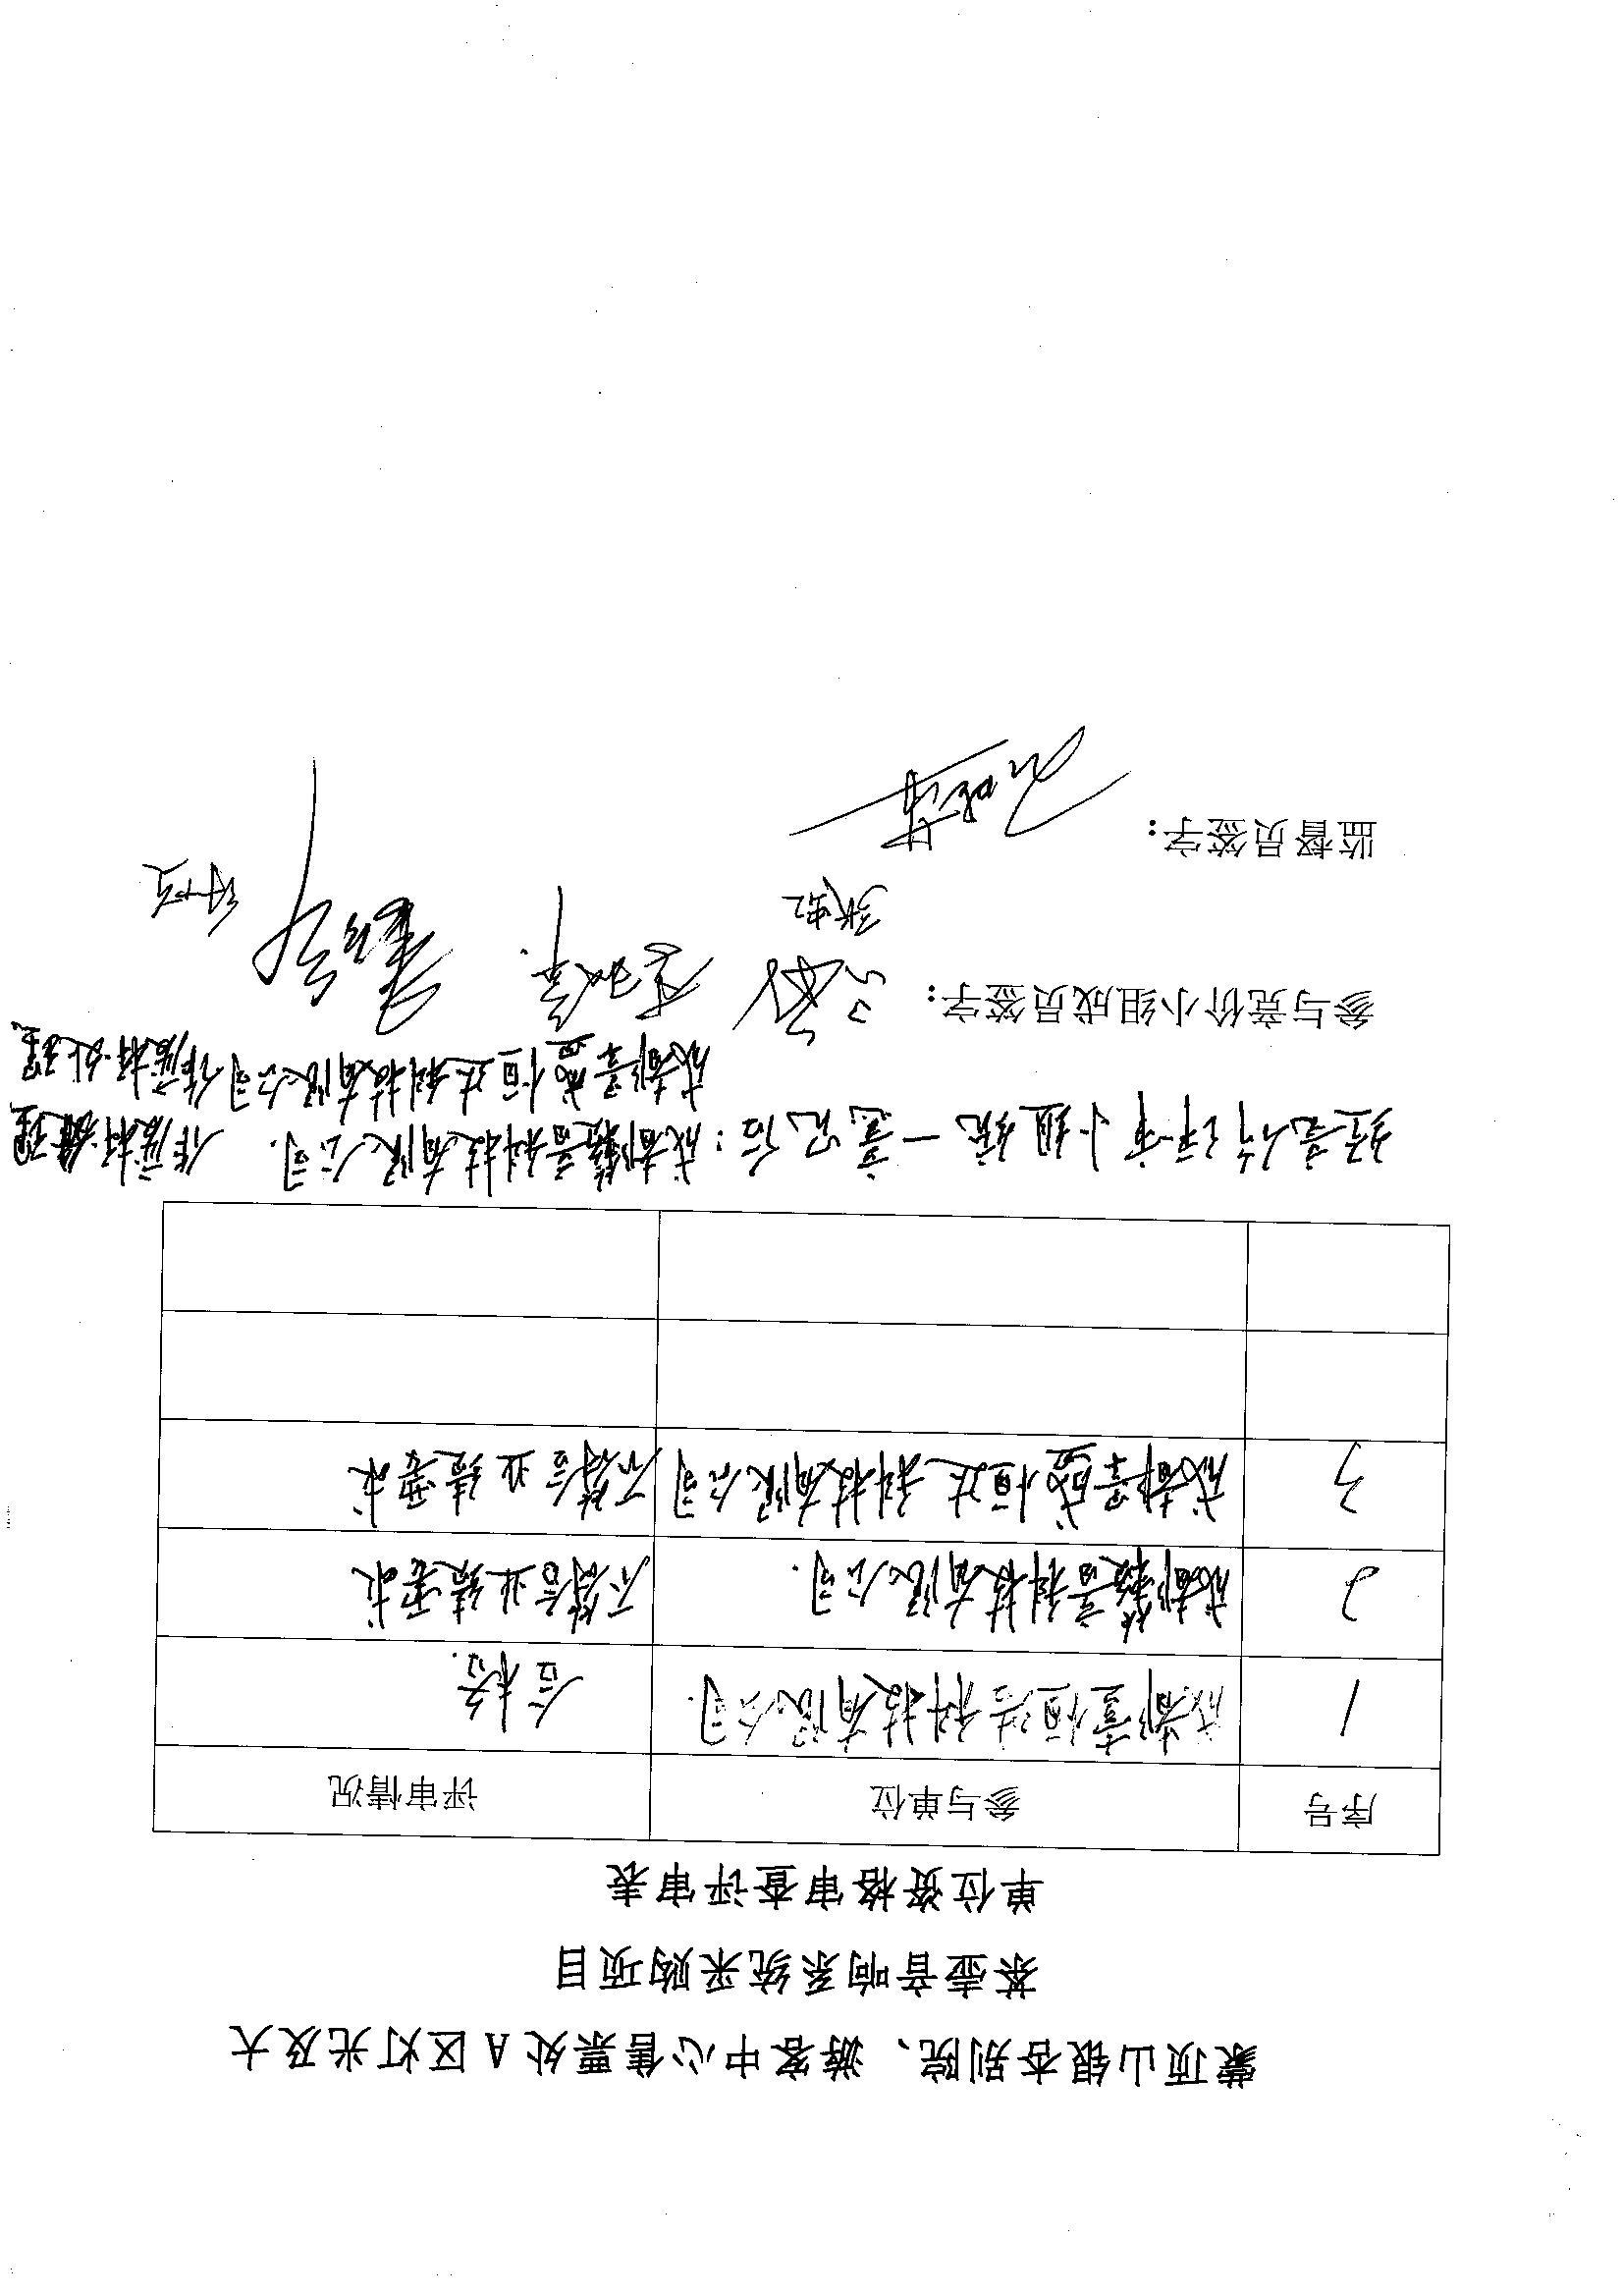 蒙顶山银杏别院、游客中心售票处A区灯光及大
茶壶音响系统采购项目
单位资格审查评审表
序号 参与单位 评审情况
1 成都壹恒浩科技有限公司. 合格.
2 成都馥音科技有限公司. 不符合业绩要求
3 成都孚盛恒达科技有限公司 不符合业绩要求
经竞价评审小组统一意见后：成都馥音科技有限公司. 作废标处理
成都孚盛恒达科技有限公司作废标处理
参与竞价小组成员签字：
张虹
监督员签字：